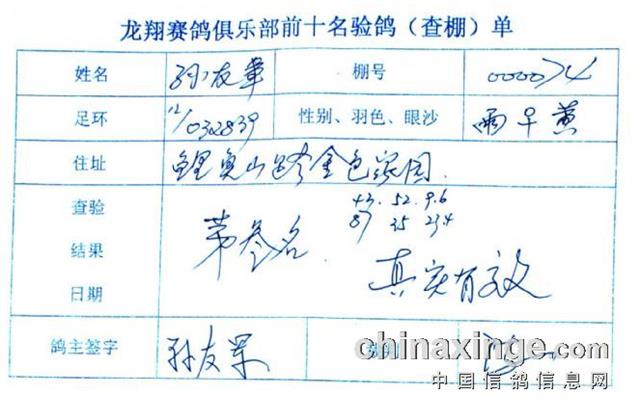 龙翔赛鸽俱乐部前十名验鸽（查棚）单
姓名 孙友军 棚号 000074
足环 12/032839 性别、羽色、眼沙 雨 黄
住址 鲤鱼山路金色家园
查验 43. 52. 9.6
87 25 234
结果 第叁名 真实有效
日期
鸽主签字 孙友军
chinaxinge.com
中国信鸽信息网